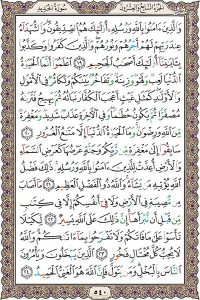 الجزء السابع والعشرون سورة الحديد
والذين ءامنوا بالله ورسله أولئك هم الصديقون والشهداء
عند ربهم لهم أجرهم ونورهم والذين كفروا وكذبوا
بـٔايتنا أولئك أصحب الجحيم ١٩ اعلموا أنما الحيوة
الدنيا لعب ولهو وزينة وتفاخر بينكم وتكاثر في الأمول
والأولد كمثل غيث أعجب الكفار نباته ثم يهيج فترىه
مصفرا ثم يكون حطما وفي الءاخرة عذاب شديد ومغفرة
من الله ورضون وما الحيوة الدنيا إلا متع الغرور ٢٠
سابقوا إلى مغفرة من ربكم وجنة عرضها كعرض السماء
والأرض أعدت للذين ءامنوا بالله ورسله ذلك فضل
الله يؤتيه من يشاء والله ذو الفضل العظيم ٢١ ما أصاب
من مصيبة في الأرض ولا في أنفسكم إلا في كتب
من قبل أن نبرأها إن ذلك على الله يسير ٢٢ لكيلا
تأسوا على ما فاتكم ولا تفرحوا بما ءاتىكم والله
لا يحب كل مختال فخور ٢٣ الذين يبخلون ويأمرون
الناس بالبخل ومن يتول فإن الله هو الغني الحميد ٢٤
٥٤٠